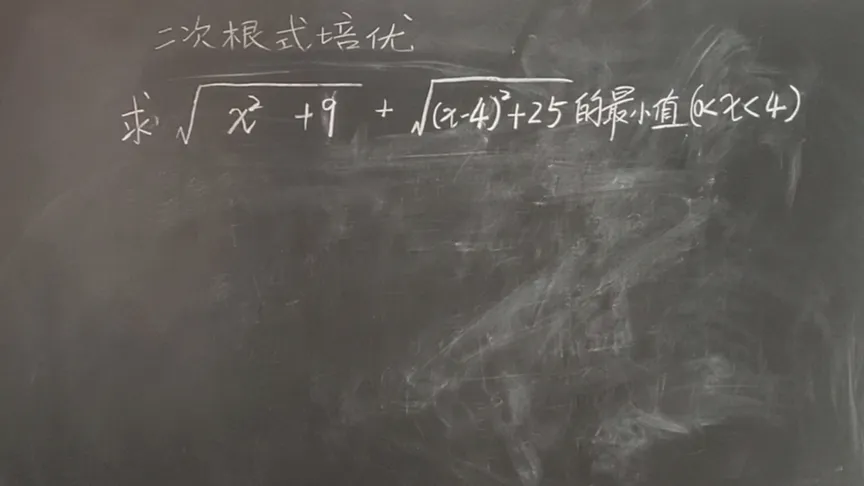 二次根式培优
求 √(x² +9) + √((x-4)²+25) 的最小值(0<x<4)